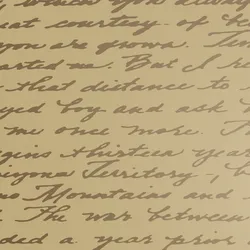 which you always
eat courtesy of
you are grown. Ten
arted me. But I re
that distance to
yed boy and ask
me once more. T
gins thirteen year
eyona Territory-, b
Mountains and
. The war between
ded a year prior